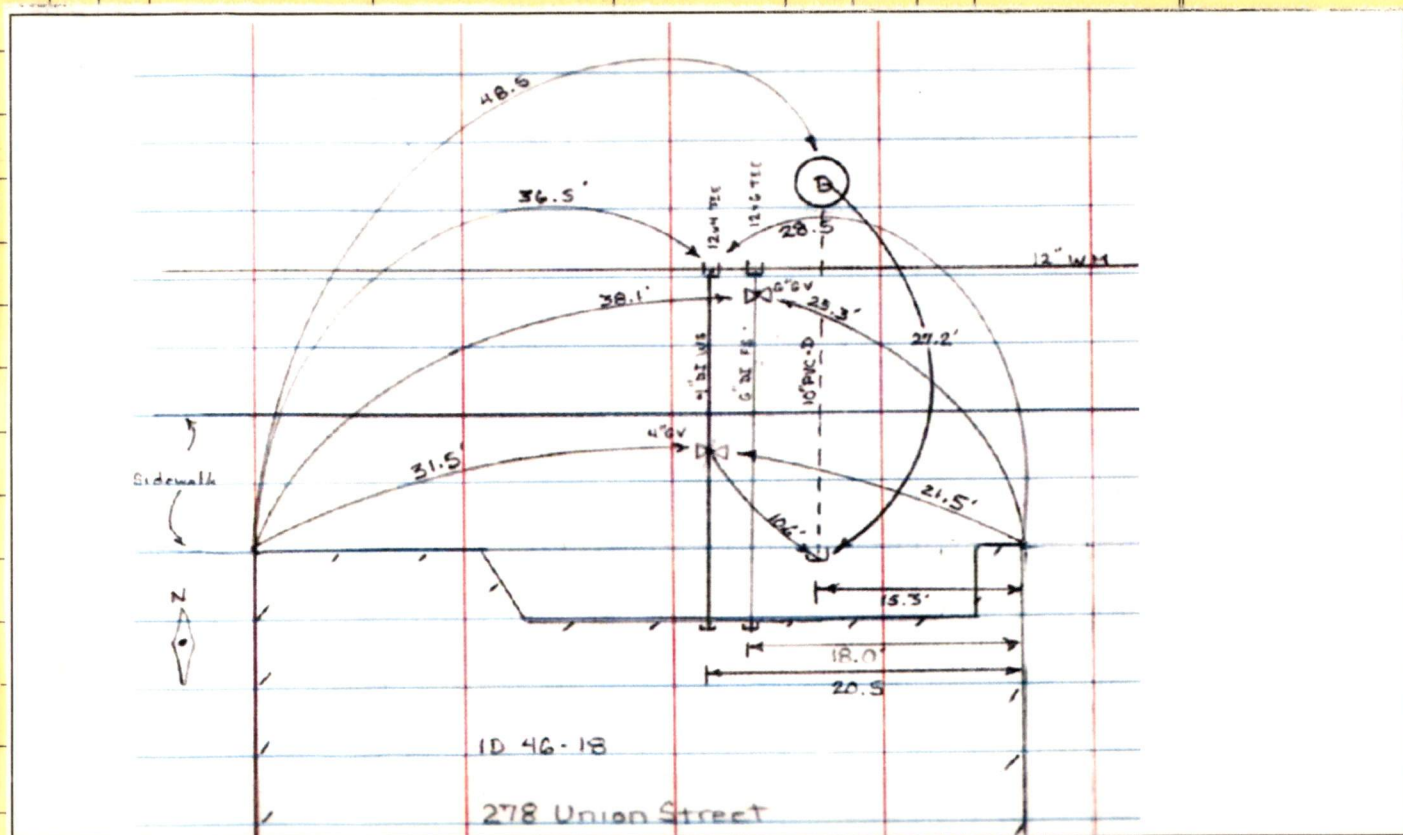 48.5
36.5'
12x4 TEE
12x6 TEE
D
28.5
12" WM
38.1'
6"GV
25.3'
27.2'
4" DI WS
6" DI FS
10" PVC-D
4"GV
31.5'
21.5'
Sidewalk
10.6'
15.3'
N
18.0'
20.5
ID 46-18
278 Union Street